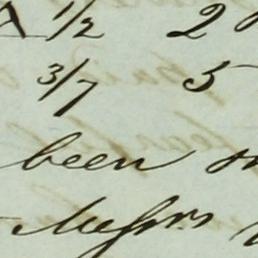 1/2 2
3/7 5
been
Messrs